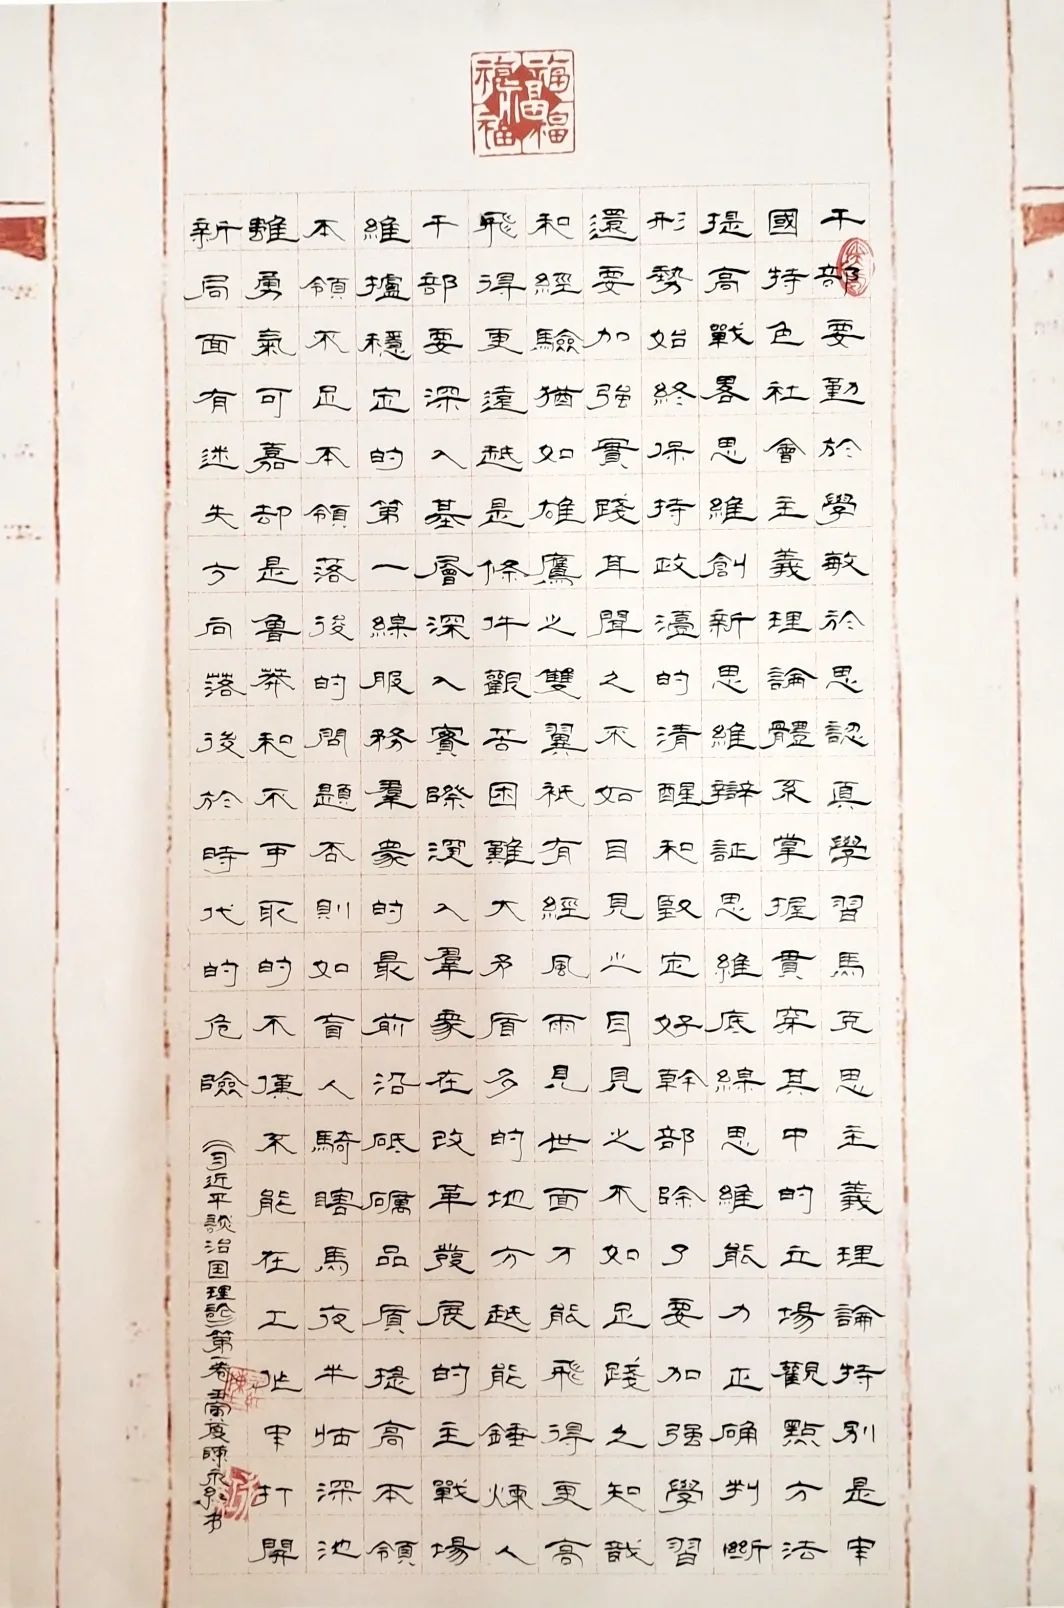 福福福福福
干部要勤於學敏於思認真學習馬克思主義理論特別是中
國特色社會主義理論體系掌握貫穿其中的立場觀點方法
提高戰畧思維創新思維辯証思維底線思維能力正确判斷
形勢始終保持政的清醒和堅定好幹部除了要加强學習
還要加強實踐耳聞之不如目見之目見之不如足踐之知哉
和經驗猶如雄鷹之雙翼衹有經風雨見世面才能飛得更高
飛得更遠越是條件觀苦困難大矛盾多的地方越能錘煉人
干部要深入基層深入實際深入羣衆在改革發展的主戰場
維護穩定的第一線服務羣衆的最前沿砥礪品質提高本領
本領不足本領落後的問題否則如盲人騎瞎馬夜半临深池
雖勇氣可嘉却是魯莽和不可取的不僅不能在工作中打開
新局面有迷失方向落後於時代的危險
《习近平談治国理論》第一卷 陳永书